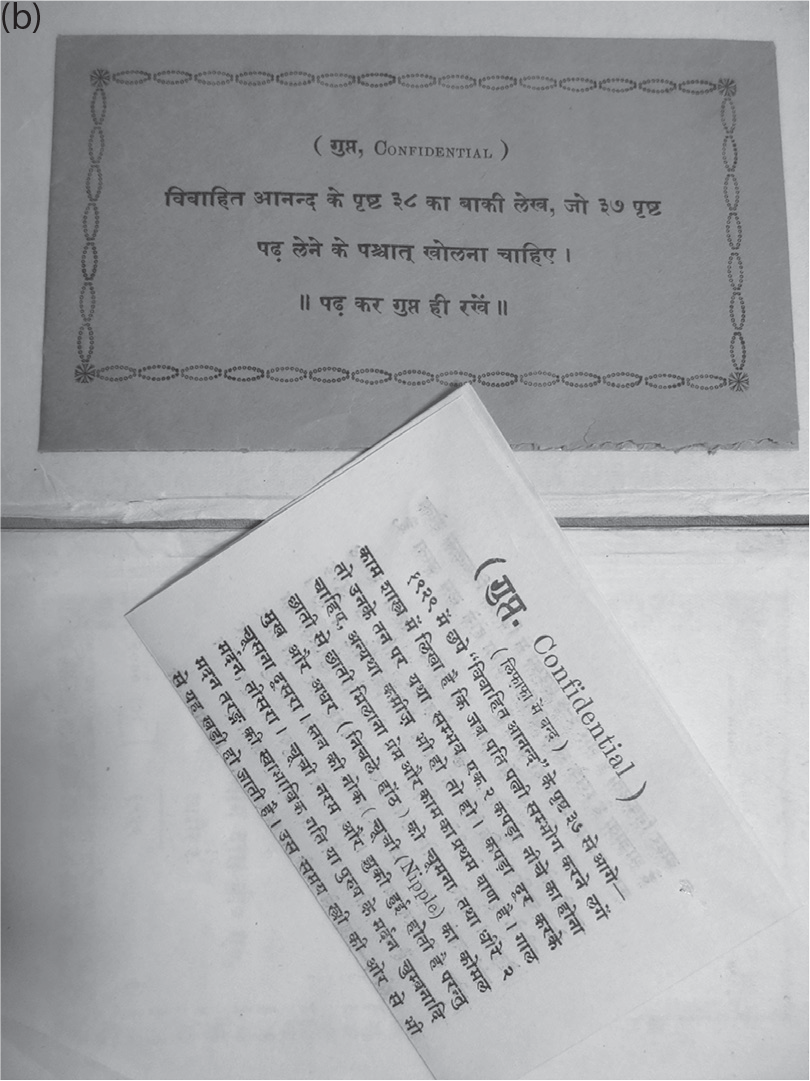 (b)
( गुप्त, CONFIDENTIAL )
विवाहित आनन्द के पृष्ट ३८ का बाकी लेख, जो ३७ पृष्ट
पढ़ लेने के पश्चात् खोलना चाहिए ।
॥ पढ़ कर गुप्त ही रखें ॥
(गुप्त- Confidential )
( लिफ़ाफ़ा में बन्द )
१९२९ में छपे “विवाहित आनन्द” के पृष्ट ३७ से आगे—
काम शास्त्र में लिखा है कि जब पति पत्नी सम्भोग करने लगें
तो उनके तन पर यथा सम्भव एक २ कपड़ा नीचे का होना
चाहिए, अन्यथा कमीज़ भी हो तो हो । कपड़ा दूर करके
छाती से छाती मिलाना प्रेम और काम का प्रथम वाण है । गाल
मुख और अधर ( निचले होंठ ) को चूमना तथा धीरे २
चूसना दूसरा । स्तन की नोक ( चूची (Nipple) का कोमल
मर्दन, तीसरा । चूची नरम और झुकी हुई होती है परन्तु
मदन तरङ्ग की स्वाभाविक गति या पुरुष के मर्दन चुम्बनादि
से यह खड़ी हो जाती है । उस समय स्त्री की ओर से भी